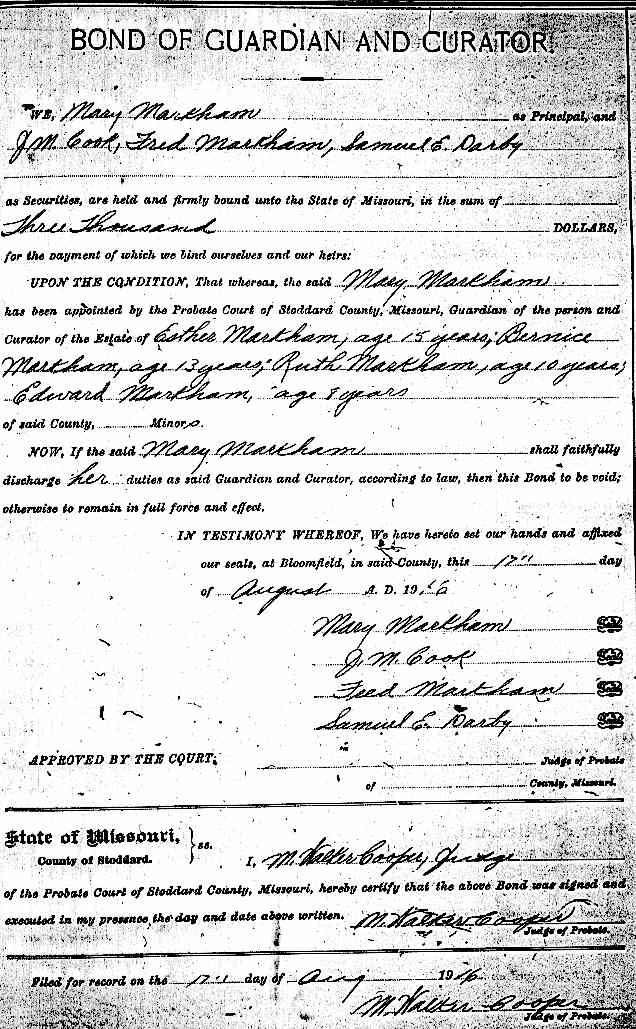 BOND OF GUARDIAN AND CURATOR.
WE, Mary Markham as Principal, and
J. M. Cook, Fred Markham, Samuel E. Darby
as Securities, are held and firmly bound unto the State of Missouri, in the sum of
Three Thousand DOLLARS,
for the payment of which we bind ourselves and our heirs:
UPON THE CONDITION, That whereas, the said Mary Markham
has been appointed by the Probate Court of Stoddard County, Missouri, Guardian of the person and
Curator of the Estate of Esther Markham, age 15 years; Bernice
Markham, age 13 years; Ruth Markham, age 10 years;
Edward Markham, age 8 years
of said County, Minors.
NOW, If the said Mary Markham shall faithfully
discharge her duties as said Guardian and Curator, according to law, then this Bond to be void;
otherwise to remain in full force and effect.
IN TESTIMONY WHEREOF, We have hereto set our hands and affixed
our seals, at Bloomfield, in said County, this 17" day
of August A. D. 1916
Mary Markham
J. M. Cook
Fred Markham
Samuel E. Darby
APPROVED BY THE COURT. Judge of Probate
of County, Missouri.
State of Missouri,
County of Stoddard. } ss. I, M. Walter Cooper, Judge
of the Probate Court of Stoddard County, Missouri, hereby certify that the above Bond was signed and
executed in my presence the day and date above written. M. Walter Cooper
Judge of Probate.
Filed for record on the 17" day of Aug 1916
M. Walter Cooper
Judge of Probate.